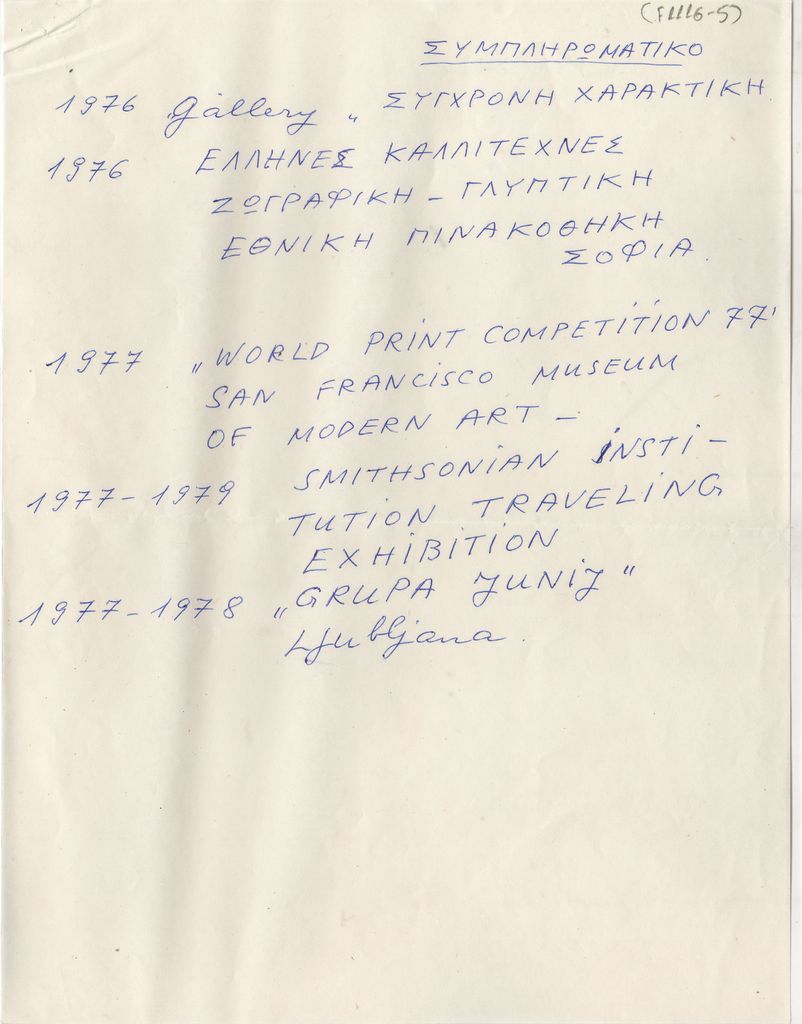 (F1116-5)
ΣΥΜΠΛΗΡΩΜΑΤΙΚΟ
1976 "Gallery" ΣΥΓΧΡΟΝΗ ΧΑΡΑΚΤΙΚΗ
1976 ΕΛΛΗΝΕΣ ΚΑΛΛΙΤΕΧΝΕΣ
ΖΩΓΡΑΦΙΚΗ - ΓΛΥΠΤΙΚΗ
ΕΘΝΙΚΗ ΠΙΝΑΚΟΘΗΚΗ
ΣΟΦΙΑ.
1977 „WORLD PRINT COMPETITION 77'
SAN FRANCISCO MUSEUM
OF MODERN ART -
1977-1979 SMITHSONIAN INSTI-
TUTION TRAVELING
EXHIBITION
1977-1978 „GRUPA JUNIJ"
Ljubljana.